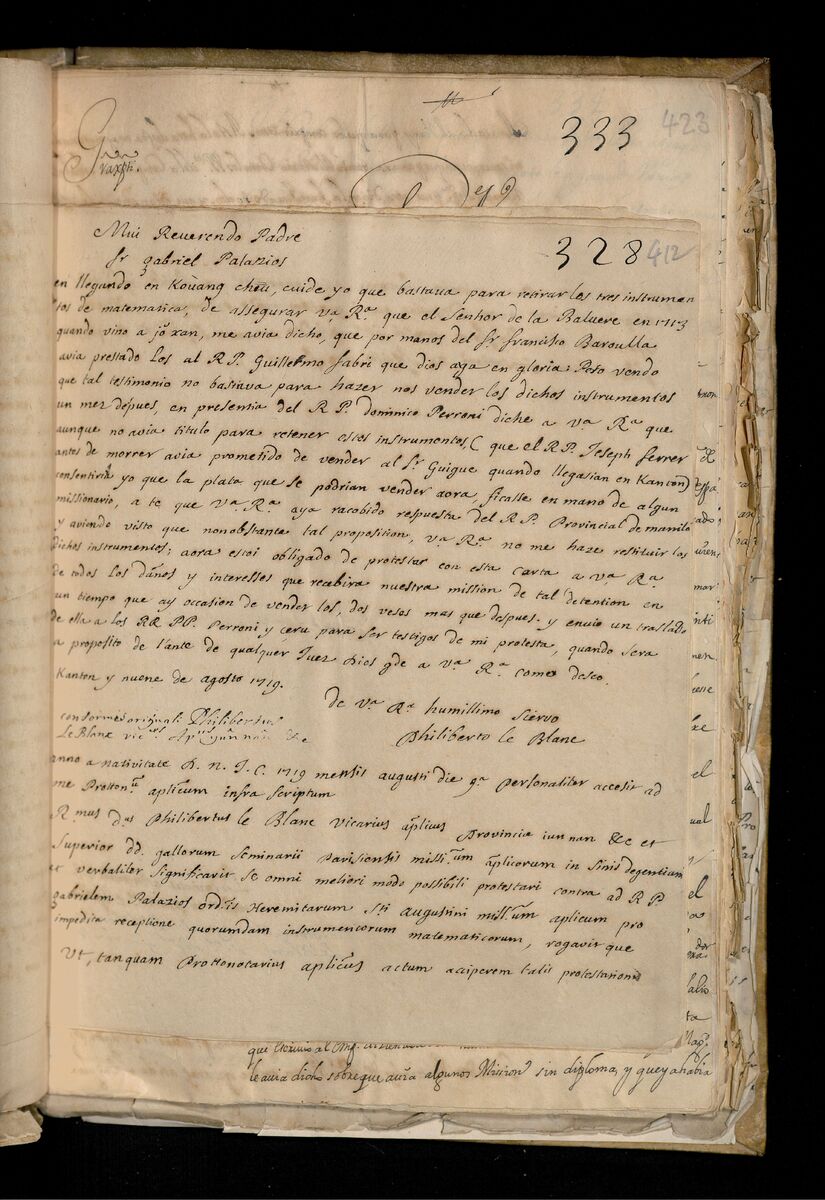 333 423
Mui Reuerendo Padre
328 412
fr gabriel Palazios
en llegundo en Koùang cheu, cuide yo que bastaua para retirar los tres instrumen
tos de matematica, de assegurar v.ª R.ª que el Senhor de la Baluere en 1713
quando vino a joxan, me auia dicho, que por manos del Sr francisco Baroulla
auia prestado los al R.P. Guillelmo fabri que dios aya en gloria: Pero vendo
que tal testimonio no bastava para hazer nos vender los dichos instrumentos
un mez dépues, en presentia del R P. dominico Perroni diche a v.ª R.ª que
aunque no avia titulo para retener estos instrumentos, (que el R.P. Joseph ferrer
antes de morrer avia prometido de vender al Sr Guigue quando llegasian en Kanton)
consentiria yo que la plata que se podrian vender aora, ficasse en mano de algun
missionario, a te que v.ª R.ª aya racobido respuesta del R.P. Provincial de manila
y aviendo visto que nonobstante tal proposition, v.ª R.ª no me haze restituir los
dichos instrumentos; aora estoi obligado de protestar con esta carta a v.ª R.ª
de todos los daños y interesses que recebira nuestra mission de tal detention en
un tiempo que ay occasion de vender los, dos vesos mas que despues. y envio un traslado
de ella a los RR PP. Perroni y ceru para ser testigos de mi protesta, quando sera
a proposito de l'ante de qualquer Juez Dios gde a v.ª R.ª como deseo.
Kanton y nueue de agosto 1719.
De v.ª R.ª humillimo siervo
conformes originali Philibertus
Le Blanc
Philiberto le Blanc
anno a nativitate D. n. J. C. 1719 mensis augusti die 9.ª personaliter accesit ad
me Protton.um aplicum infra scriptum
R.mus D.us Philibertus le Blanc Vicarius aplicus Provinciæ iunnan &c et
Superior dd. gallorum Seminarii Parisiensis miss.um aplicorum in Sinis degentium
et verbaliter significavit se omni meliori modo possibili protestari contra ad R P.
gabrielem Palazios ordis Heremitarum Sti augustini miss.um aplicum pro
impedita receptione quorumdam instrumentorum matematicorum, rogavit que
Ut, tanquam Prottonotarius aplicus actum acciperem talis protestationis
leauia dicho sobreque auia algunos Mission.s sin diploma, y que ya habia